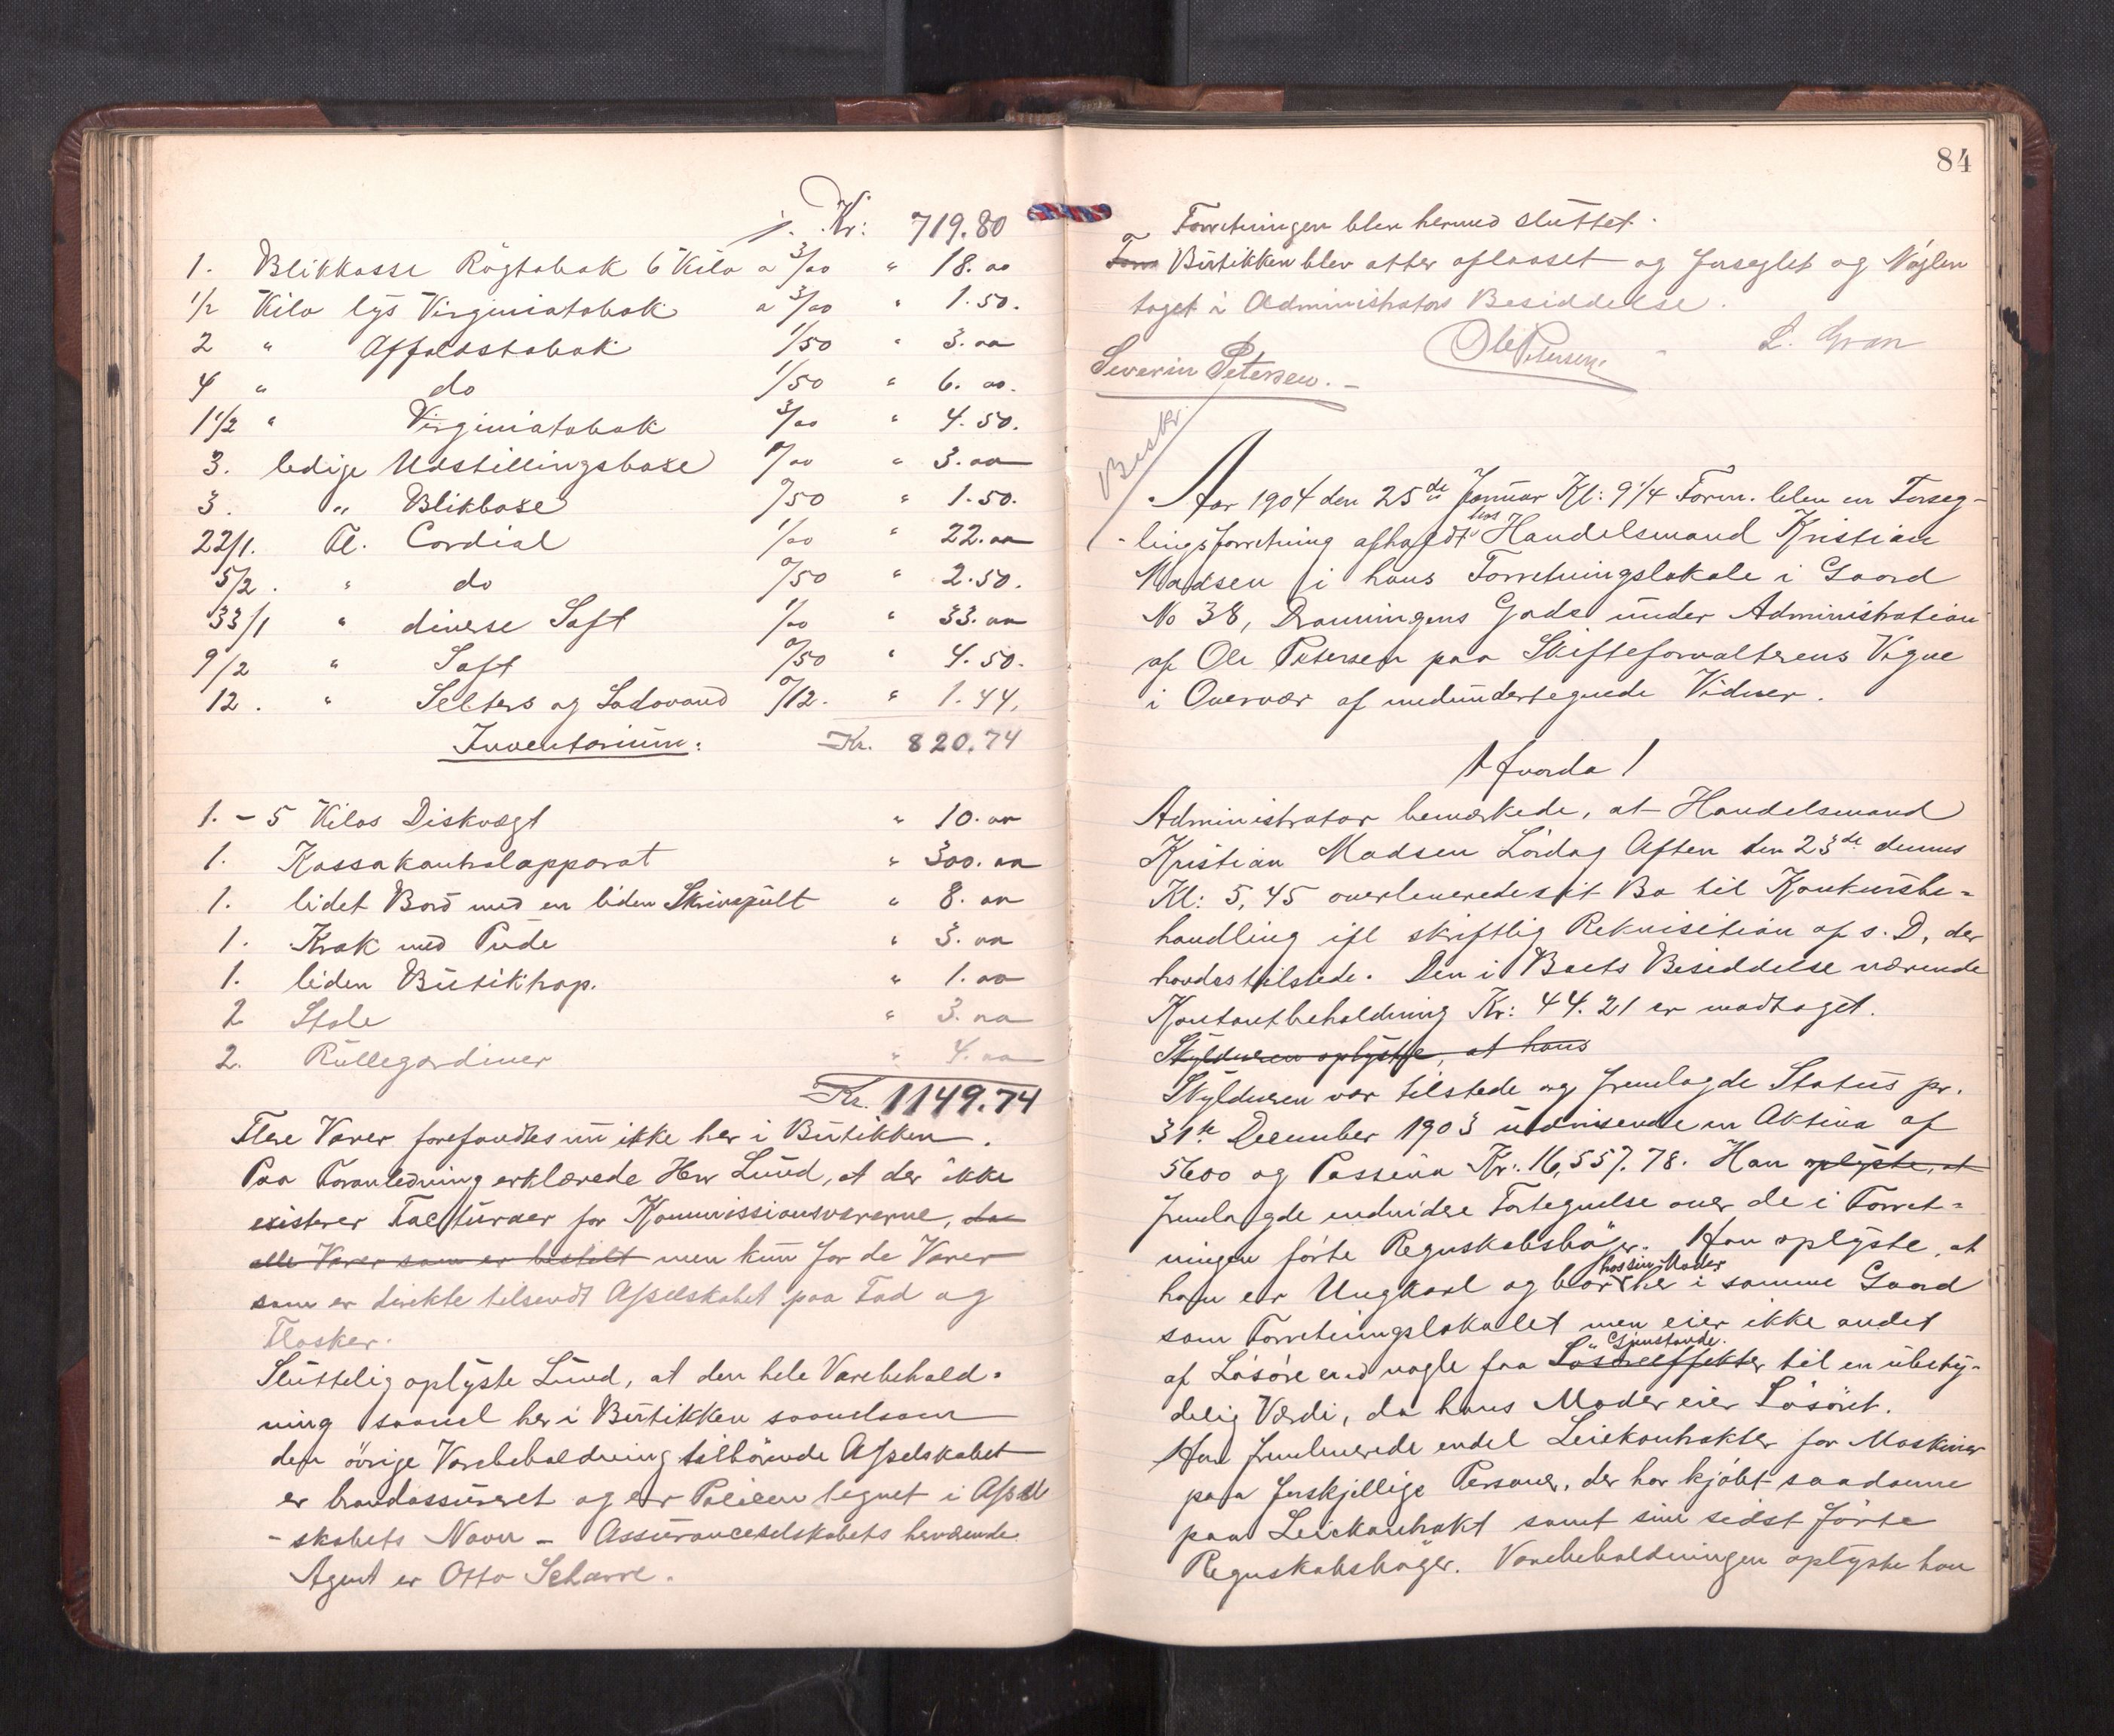 Kr: 719.80
1. Blikkasse Rögtobak 6 Kilo a 3/00 " 18.00
1/2 Kilo lys Virginiatobak a 3/00 " 1.50.
2 " Affaldstobak 1/50 " 3.00
4 " do 1/50 " 6.00.
1 1/2 " Virginiatobak 3/00 " 4.50.
3. ledige Udstillingsboxe 1/00 " 3.00
3. " Blikboxe 0/50 " 1.50.
22/1. Fl. Cordial 1/00 " 22.00
5/2. " do 0/50 " 2.50.
33/1 " diverse Saft 1/00 " 33.00
9/2 " Saft 0/50 " 4.50.
12. " Selters og Sodavand 0/12. " 1.44.
Inventarium: Kr. 820.74
1. - 5 Kilos Diskvægt " 10.00
1. Kassakontrolapparat " 300.00
1. lidet Bord med en liden Skrivepult " 8.00
1. Krak med Pude " 3.00
1. liden Butiktrap. " 1.00
2 Stole " 3.00
2. Rullegardiner " 4.00
Kr. 1149.74
Flere Varer forefandtes nu ikke her i Butikken.
Paa Foranledning erklærede Herr Lund, at der ikke
existerer Facturaer for Kommissionsvarerne, da
alle Varer som er bestilt men kun for de Varer
som er direkte tilsendt Afselskabet paa Fad og
Flasker.
Sluttelig oplyste Lund, at den hele Varebehold-
ning saavel her i Butikken saavelsom
den övrige Varebeholdning tilhörende Afselskabet
er brandassureret og er Policen tegnet i Afsel
- skabets Navn - Assuranceselskabets herværende
Agent er Otto Scharre.
84
Forretningen blev hermed sluttet.
Forr Butikken blev atter aflaaset og forseglet og Nöglen
taget i Administrators Besiddelse.
Severin Petersen. - Ole Petersen. - L. Gran
Beskr.
Aar 1904 den 25de Januar Kl: 9 1/4 Form. blev en Forseg-
- lingsforretning afholdt hos Handelsmand Kristian
Madsen i hans Forretningslokale i Gaard
No 38, Dronningens Gade under Administration
af Ole Petersen paa Skifteforvalterens Vegne
i Overvær af medundertegnede Vidner.
Hvorda!
Administrator bemærkede, at Handelsmand
Kristian Madsen Lördag Aften den 23de dennes
Kl: 5,45 overleverede sit Bo til Konkursbe-
handling ifl skriftlig Rekvisition af s. D. der
havdes tilstede. Den i Boets Besiddelse værende
Kontantbeholdning Kr: 44.21 er modtaget.
Skyldneren oplyste, at hans
Skyldneren var tilstede og fremlagde Status pr.
31te December 1903 udvisende en Aktiva af
5600 og Passiva Kr: 16,557.78. Han oplyste, at
fremlagde endvidere Fortegnelse over de i Forret-
ningen förte Regnskabsböger. Han oplyste, at
han er Ungkarl og bor hos sin Moder her i samme Gaard
som Forretningslokalet men eier ikke andet
af Lösöre end nogle faa Lösöreeffekter Gjenstande. til en ubety-
delig Værdi, da hans Moder eier Lösöret.
Han fremleverede endel Leiekontrakter for Maskiner
paa forskjellige Personer, der har kjöbt saadanne
paa Leiekontrakt samt sine sidst förte
Regnskabsböger. Varebeholdningen oplyste han